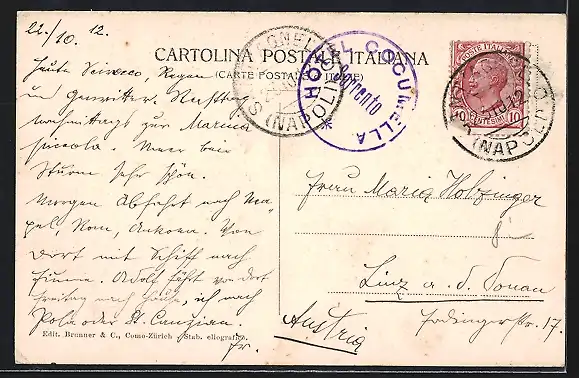 22./10. 12.
CARTOLINA POSTALE ITALIANA
(CARTE POSTALE ITALIE)
HÔTEL COCUMELLA
Sorrento
POSTE ITALIANE
CENTESIMI 10
(NAPOLI)
(NAPOLI)
Heute Scirocco, Regen
und Gewitter.
nachmittags zur Marina
piccola. Meer bei
Sturm sehr schön.
Morgen Abfahrt nach Nea-
pel, Rom, Ankona. Von
dort mit Schiff nach
Fiume. Adolf fährt von dort
Freitag nach Hause, ich nach
Pola oder St. Canzian.
Fr.
Frau Maria Holzinger
in
Linz a. d. Donau
Austria
17.
Edit. Brunner & C., Como-Zürich Stab. eliografico.